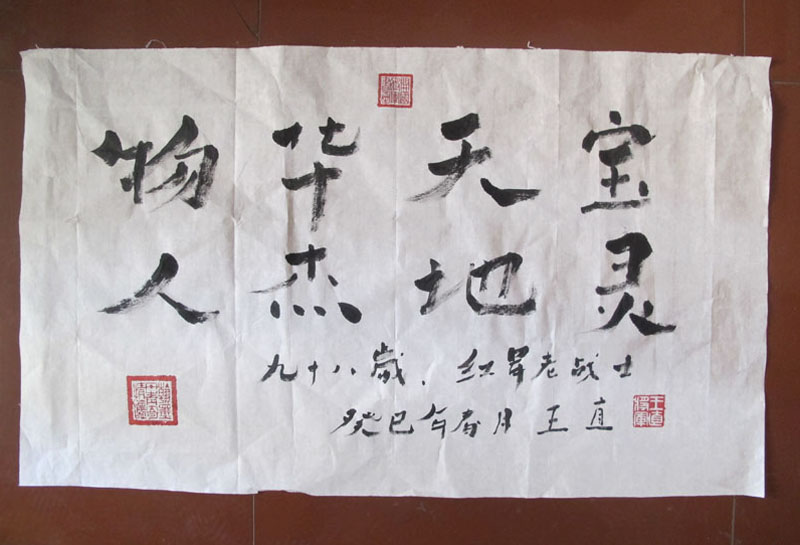 物华天宝
人杰地灵
九十八歲、红军老战士
癸巳年春月 王直
王直将军